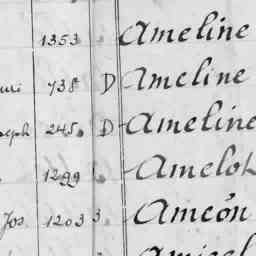 1353 Ameline
738 D Ameline
seph 245 D Ameline
1299 Amelot
Jos 1203 3 Ameón